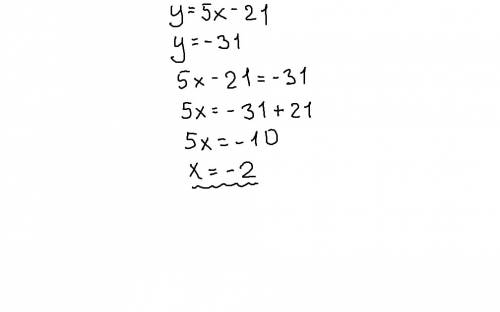 y=5x-21
y=-31
5x-21=-31
5x=-31+21
5x=-10
x=-2